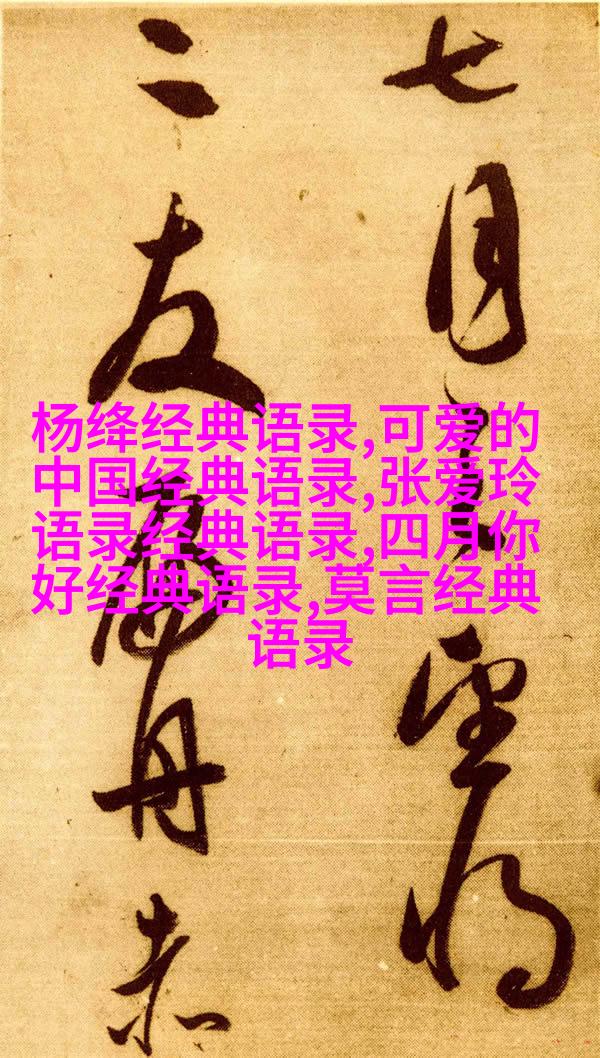 七月之望将
二友舟赤
杨绛经典语录,可爱的
中国经典语录,张爱玲
语录经典语录,四月你
好经典语录,莫言经典
语录